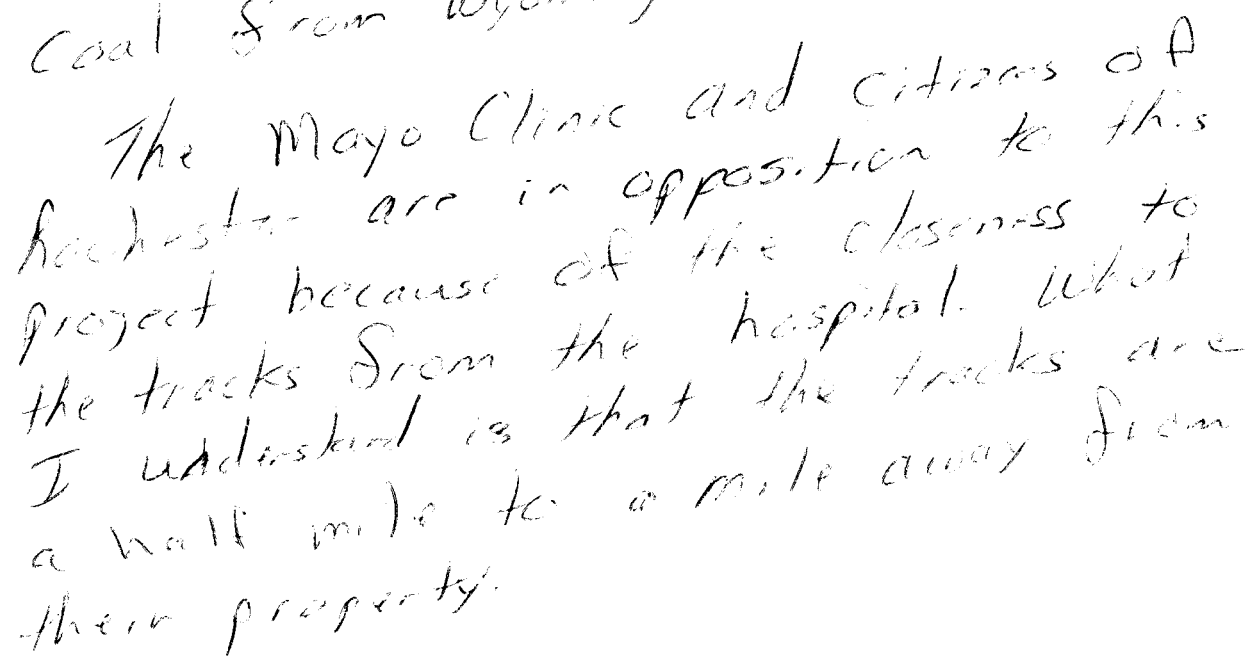 Coal from Wyoming
The Mayo Clinic and citizens of
Rochester are in opposition to this
project because of the closeness to
the tracks from the hospital. What
I understand is that the tracks are
a half mile to a mile away from
their property.